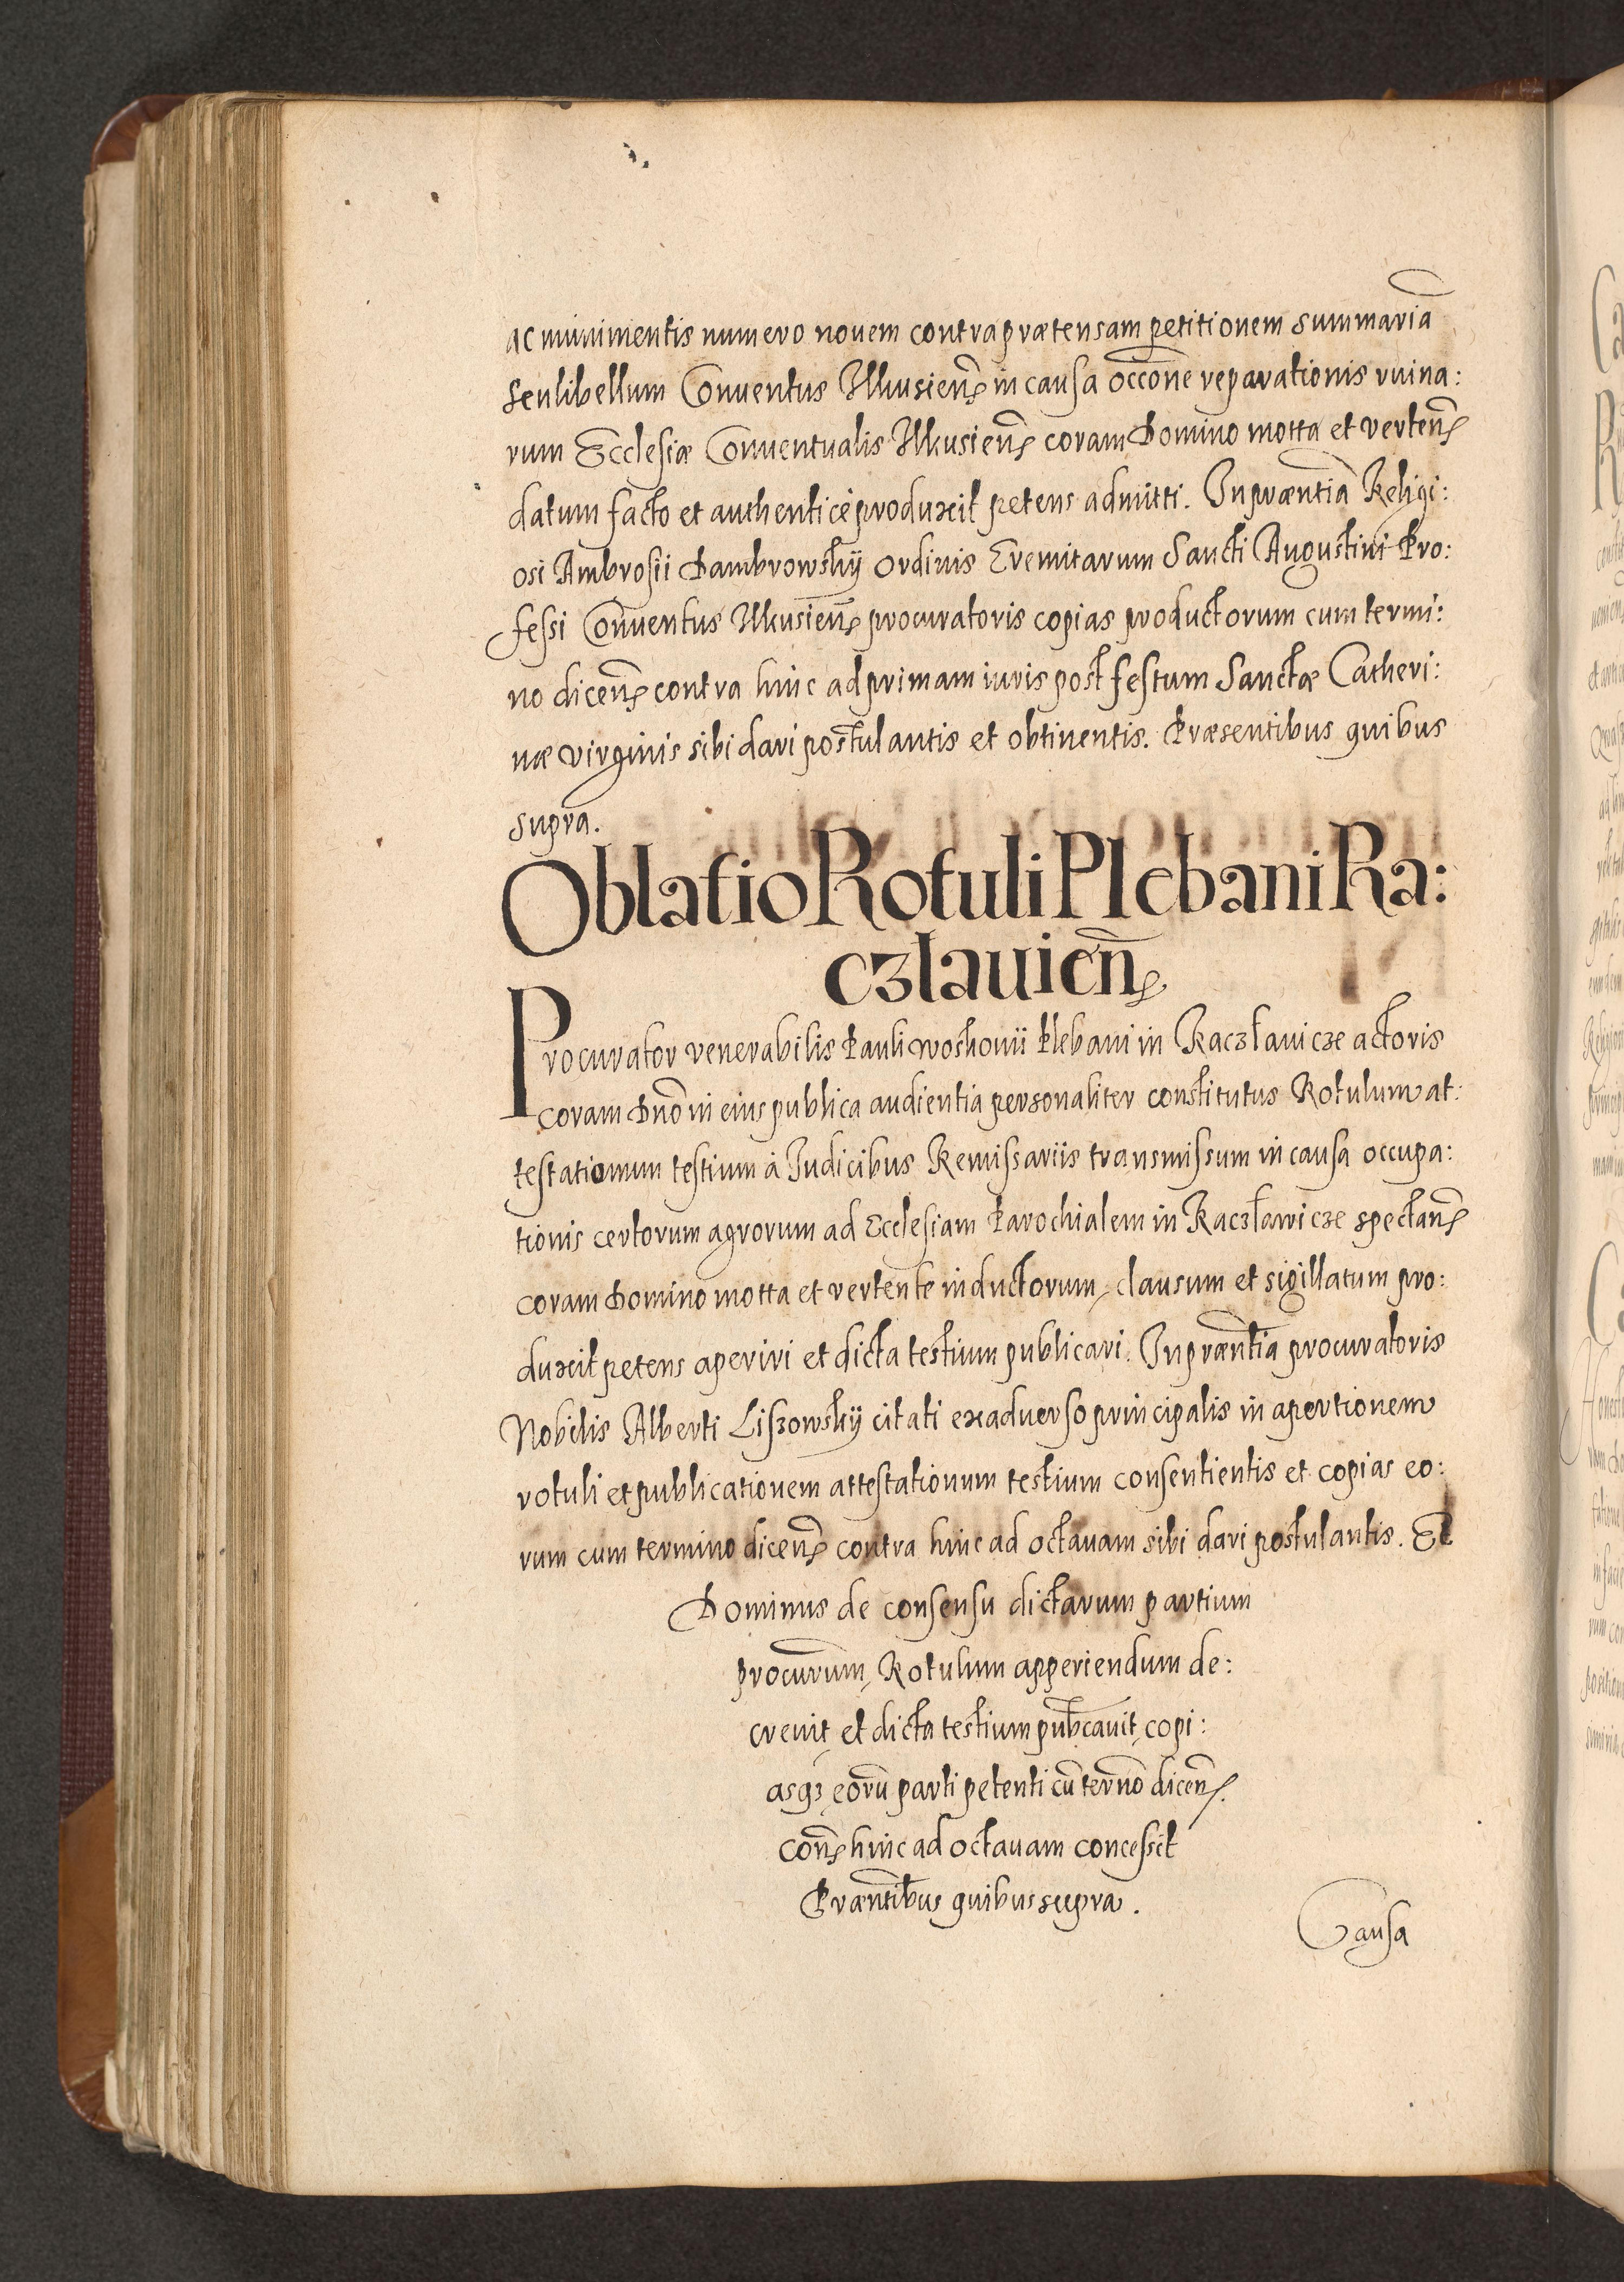 ac munimentis numero nouem contra prætensam petitionem summariã
seu libellum Conuentus Illkusien̄ in causa occ̄one reparationis ruina:
rum Ecclesiæ Conuentualis Illkusien̄ coram Domino motta et verten̄
datum facto et authenticè produxit petens admitti. In præntiā Religi:
osi Ambrosii Dambrowskÿ ordinis Eremitarum Sancti Augustini Pro:
fessi Conuentus Illkusien̄ procuratoris copias productorum cum termi:
no dicen̄ contra hinc ad primam iuris post festum Sanctæ Catheri:
næ virginis sibi dari postulantis et obtinentis. Præsentibus quibus
supra.
Oblatio Rotuli Plebani Ra:
czlauien̄
Procurator venerabilis Pauli Woskonii Plebani in Raczlauicze actoris
coram Dnō in eius publica audientia personaliter constitutus Rotulum at:
testationum testium à Iudicibus Remissariis transmissum in causa occupa:
tionis certorum agrorum ad Ecclesiam Parochialem in Raczławicze spectan̄
coram Domino motta et vertente inductorum, clausum et sigillatum pro:
duxit petens aperiri et dicta testium publicari. In præntia procuratoris
Nobilis Alberti Liszowskÿ citati ex aduerso principalis in apertionem
rotuli et publicationem attestationum testium consentientis et copias eo:
rum cum termino dicen̄ contra hinc ad octauam sibi dari postulantis. Et
Dominus de consensu dictarum partium
procur̄um, Rotulum apperiendum de:
creuit, et dicta testium pub̄cauit, copi:
asqꝫ eorū parti petenti cū ternō dicen̄
con̄ hinc ad octauam concessit
Præntibus quibus supra.
Causa